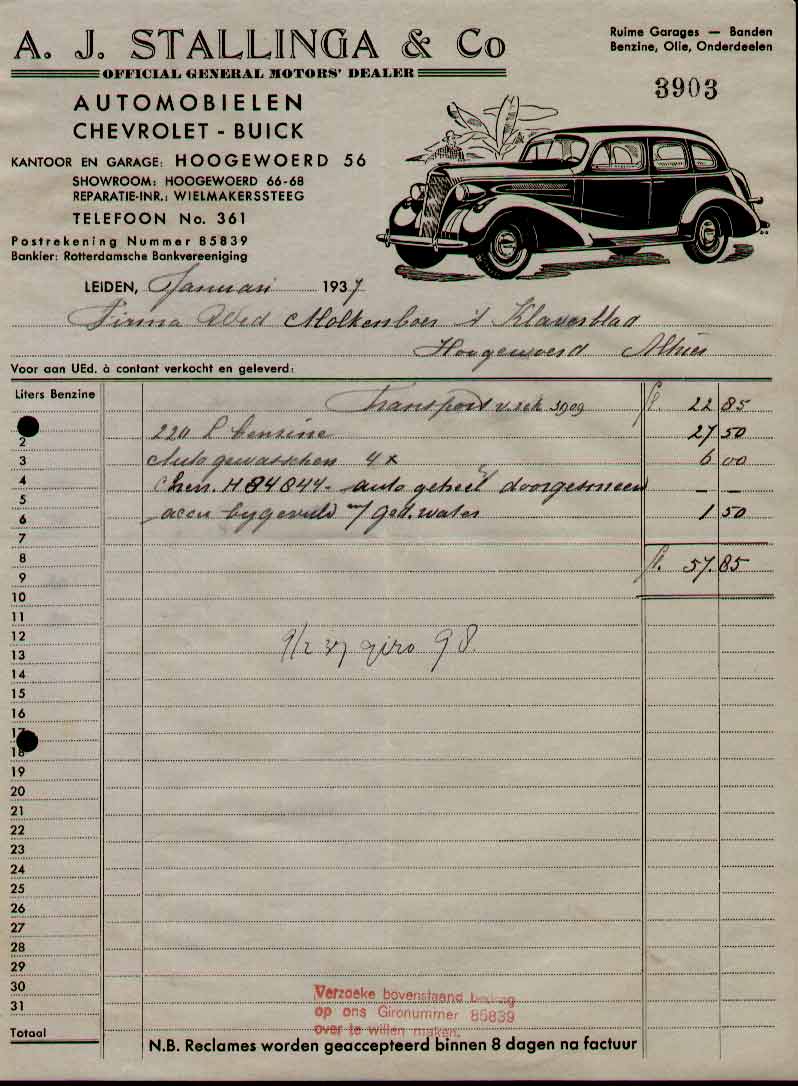 A. J. STALLINGA & Co
OFFICIAL GENERAL MOTORS' DEALER
Ruime Garages — Banden
Benzine, Olie, Onderdeelen
3903
AUTOMOBIELEN
CHEVROLET - BUICK
KANTOOR EN GARAGE: HOOGEWOERD 56
SHOWROOM: HOOGEWOERD 66-68
REPARATIE-INR.: WIELMAKERSSTEEG
TELEFOON No. 361
Postrekening Nummer 85839
Bankier: Rotterdamsche Bankvereeniging
LEIDEN, Januari 1937
Firma Wed Molkenboer 't Klaverblad
Hoogewoerd Alhier
Voor aan UEd. à contant verkocht en geleverd:
Liters Benzine
Transport v. rek 3909 fl. 22 85
2 220 L benzine 27 50
3 Auto gewasschen 4x 6 00
4 Chev. H 84844 - auto geheel doorgesmeerd - -
5
6 accu bygevuld m/ ged. water 1 50
7
8 fl. 57.85
9
10
11
12 giro
13
14
15
16
17
18
19
20
21
22
23
24
25
26
27
28
29
30
31
Totaal
Verzoeke bovenstaand bedrag
op ons Gironummer 85839
over te willen maken.
N.B. Reclames worden geaccepteerd binnen 8 dagen na factuur